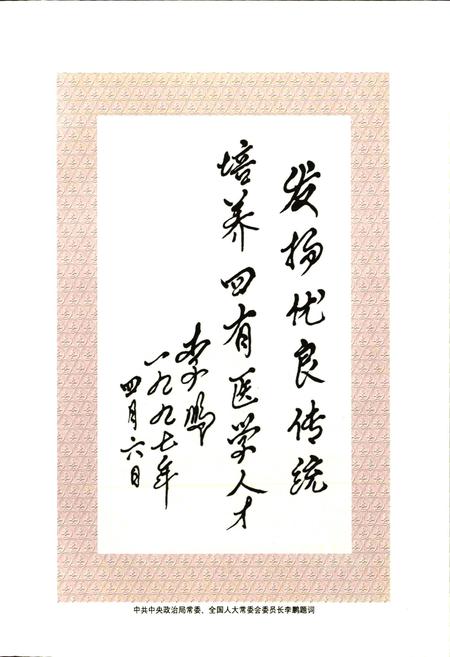 发扬优良传统
培养四有医学人才
李鹏
一九九七年
四月六日
中共中央政治局常委、全国人大常委会委员长李鹏题词